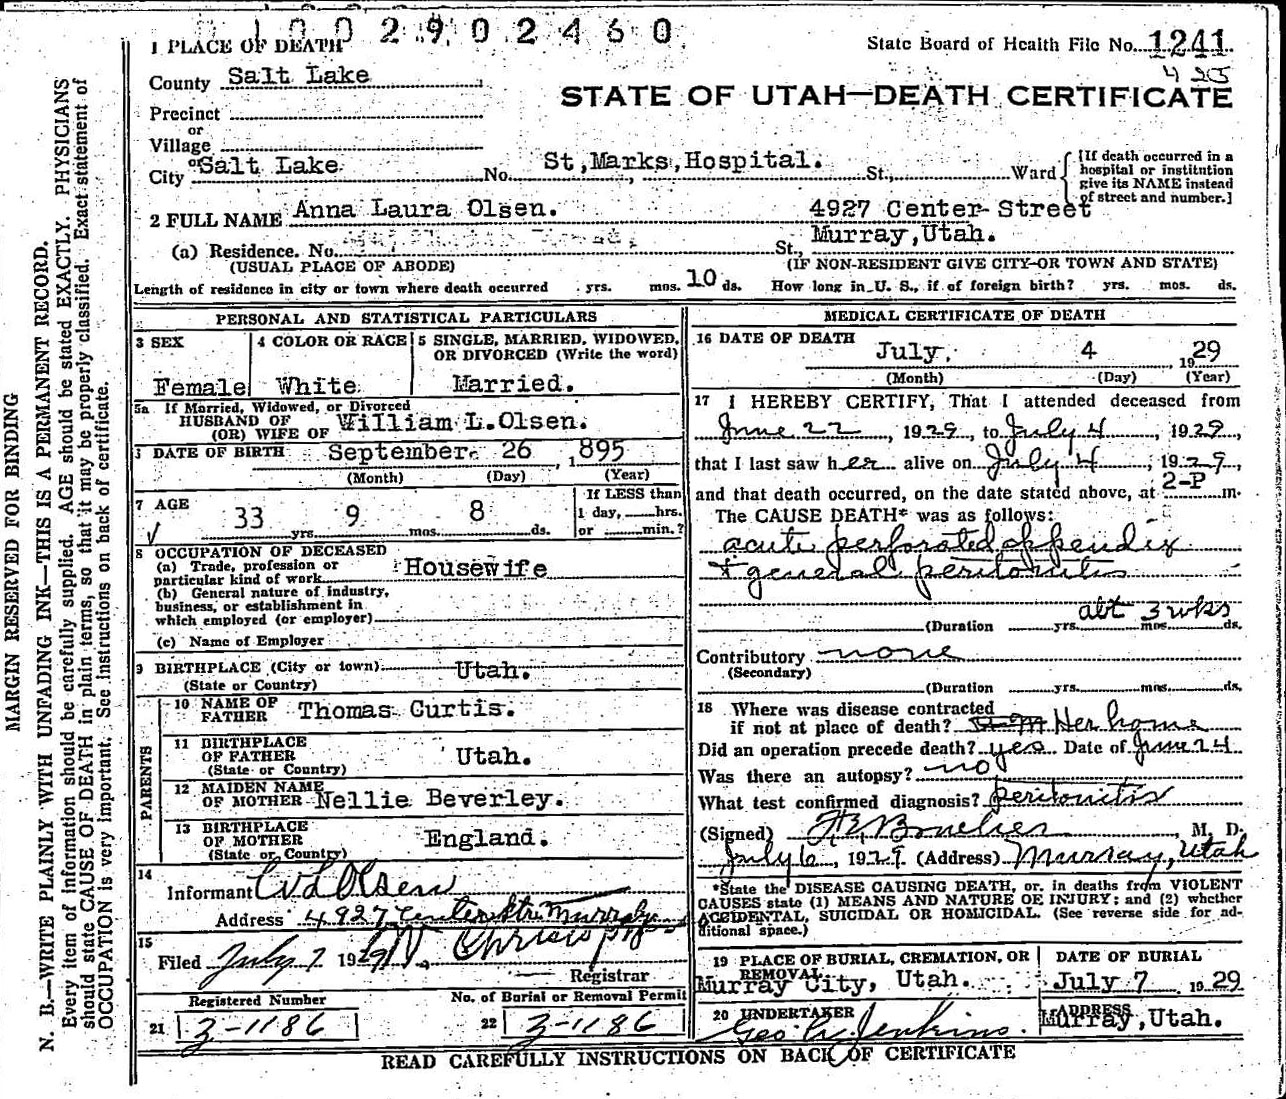 1002902460
State Board of Health File No. 1241
425
STATE OF UTAH—DEATH CERTIFICATE
1 PLACE OF DEATH
County Salt Lake
Precinct
or
Village
or
City Salt Lake No. St,Marks,Hospital. St., Ward
[If death occurred in a
hospital or institution
give its NAME instead
of street and number.]
2 FULL NAME Anna Laura Olsen.
4927 Center Street
(a) Residence. No. St., Murray,Utah.
(USUAL PLACE OF ABODE) (IF NON-RESIDENT GIVE CITY OR TOWN AND STATE)
Length of residence in city or town where death occurred yrs. mos. 10 ds. How long in U. S., if of foreign birth? yrs. mos. ds.
PERSONAL AND STATISTICAL PARTICULARS
3 SEX
Female
4 COLOR OR RACE
White
5 SINGLE, MARRIED, WIDOWED,
OR DIVORCED (Write the word)
Married.
5a If Married, Widowed, or Divorced
HUSBAND OF
(OR) WIFE OF William L.Olsen.
DATE OF BIRTH September 26 , 1895
(Month) (Day) (Year)
7 AGE
33 yrs. 9 mos. 8 ds.
If LESS than
1 day, hrs.
or min.?
8 OCCUPATION OF DECEASED
(a) Trade, profession or
particular kind of work Housewife
(b) General nature of industry,
business, or establishment in
which employed (or employer)
(c) Name of Employer
9 BIRTHPLACE (City or town) Utah.
(State or Country)
PARENTS
10 NAME OF
FATHER Thomas Curtis.
11 BIRTHPLACE
OF FATHER Utah.
(State or Country)
12 MAIDEN NAME
OF MOTHER Nellie Beverley.
13 BIRTHPLACE
OF MOTHER England.
(State or Country)
14
Informant W L Olsen
Address 4927 Center Str Murray
15
Filed July 7 1929
Registrar
Registered Number
21 Z-1186
No. of Burial or Removal Permit
22 Z-1186
MEDICAL CERTIFICATE OF DEATH
16 DATE OF DEATH
July. 4 , 1929
(Month) (Day) (Year)
17 I HEREBY CERTIFY, That I attended deceased from
June 22, 1929, to July 4, 1929,
that I last saw her alive on July 4, 1929,
and that death occurred, on the date stated above, at 2-P m.
The CAUSE DEATH* was as follows:
acute perforated appendix
+ general peritonitis
abt 3 wks
(Duration yrs. mos. ds.
Contributory none
(Secondary)
(Duration yrs. mos. ds.
18 Where was disease contracted
if not at place of death? Her home
Did an operation precede death? yes Date of June 24
Was there an autopsy? no
What test confirmed diagnosis? peritonitis
(Signed) M. D.
July 6, 1929 (Address) Murray, Utah
*State the DISEASE CAUSING DEATH, or, in deaths from VIOLENT
CAUSES state (1) MEANS AND NATURE OF INJURY; and (2) whether
ACCIDENTAL, SUICIDAL OR HOMICIDAL. (See reverse side for ad-
ditional space.)
19 PLACE OF BURIAL, CREMATION, OR
REMOVAL
Murray City, Utah.
DATE OF BURIAL
July 7 1929
20 UNDERTAKER
Geo. A. Jenkins.
ADDRESS
Murray,Utah.
READ CAREFULLY INSTRUCTIONS ON BACK OF CERTIFICATE
MARGIN RESERVED FOR BINDING
N. B.—WRITE PLAINLY WITH UNFADING INK—THIS IS A PERMANENT RECORD.
Every item of information should be carefully supplied. AGE should be stated EXACTLY. PHYSICIANS
should state CAUSE OF DEATH in plain terms, so that it may be properly classified. Exact statement of
OCCUPATION is very important. See instructions on back of certificate.